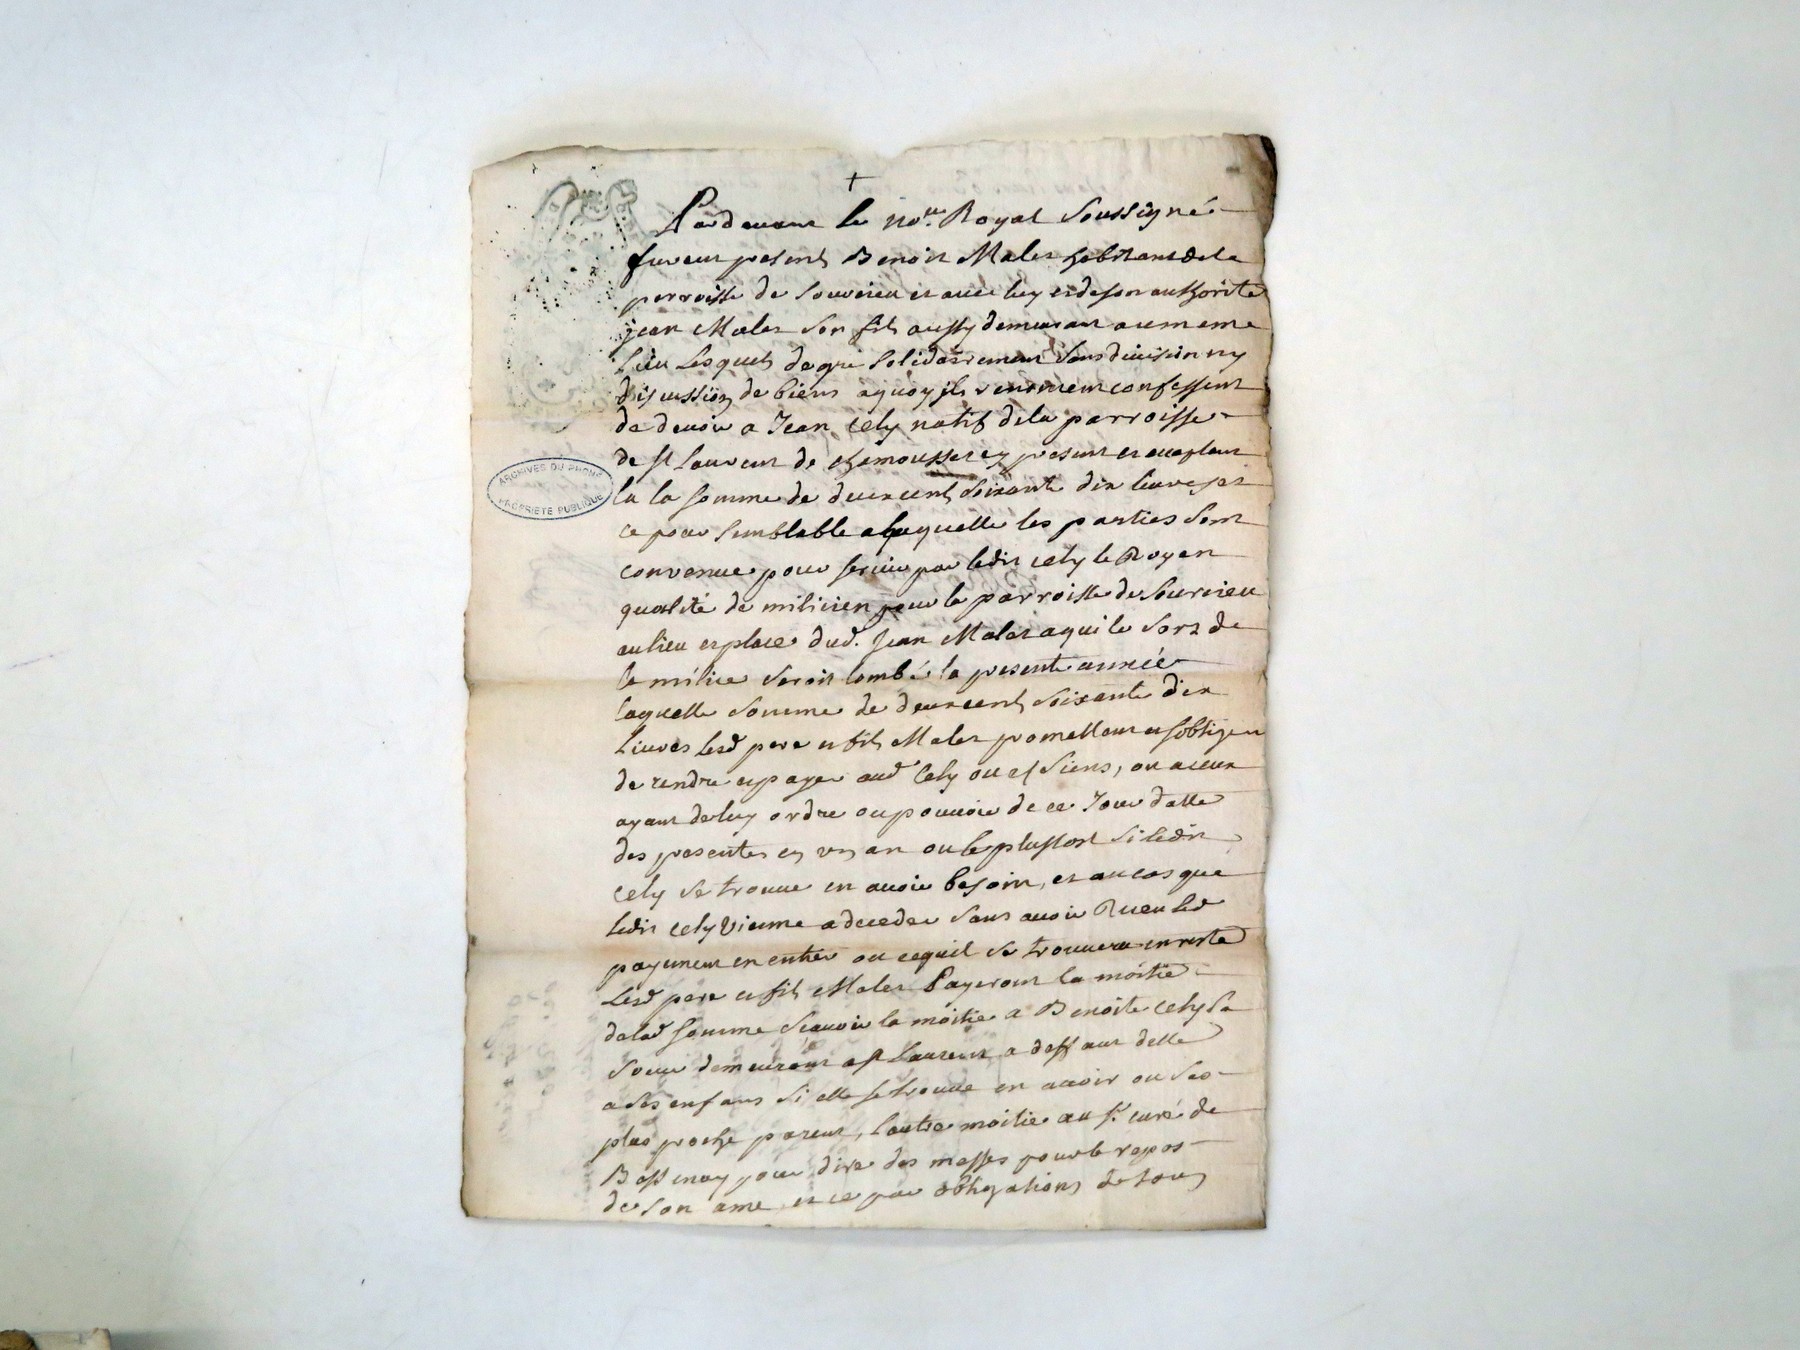 +
Pardevant le no.re Royal soussigné
furent presents Benoit Malet habitant de la
parroisse de Sourcieu et avec luy et de son authorité
jean Malet son fils aussy demeurant au meme
lieu Lesquels de gré solidairement sans division ny
discussion de biens a quoy ils renoncent confessent
de devoir a Jean Cely natif de la parroisse
de st Laurent de chamoussetz present et acceptant
la somme de deux cents soixante dix livres et
ce pour semblable a laquelle les parties sont
convenue pour servir par ledit Cely le Roy en
qualité de milicien pour la parroisse de Sourcieu
au lieu et place dud. Jean Malet a qui le sort de
la milice seroit tombé la presente année
laquelle somme de deux cents soixante dix
livres lesd pere et fils Malet promettent et sobligent
de rendre et payer aud Cely ou es siens, ou a ceux
ayant de luy ordre ou pouvoir de ce Jour datte
des presentes en un an ou le plustost si ledit
Cely se trouve en avoir besoin, et au cas que
ledit Cely vienne a deceder sans avoir Receu led
payement en entier ou ce quil se trouvera en reste
Lesd pere et fils Malet Payeront la moitié
delad somme sçavoir la moitié a Benoite Cely sa
soeur demeurant a st Laurent a deffaut delle
a ses enfans si elle se trouve en avoir ou ses
plus proche parent, lautre moitié au sr. curé de
Bessenay pour dire des messes pour le repos
de son ame et ce par obligations de tous
ARCHIVES DU RHONE
PROPRIETE PUBLIQUE